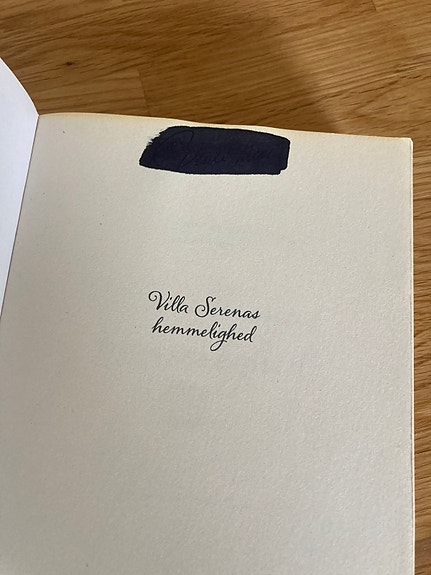 Villa Serenas
hemmelighed